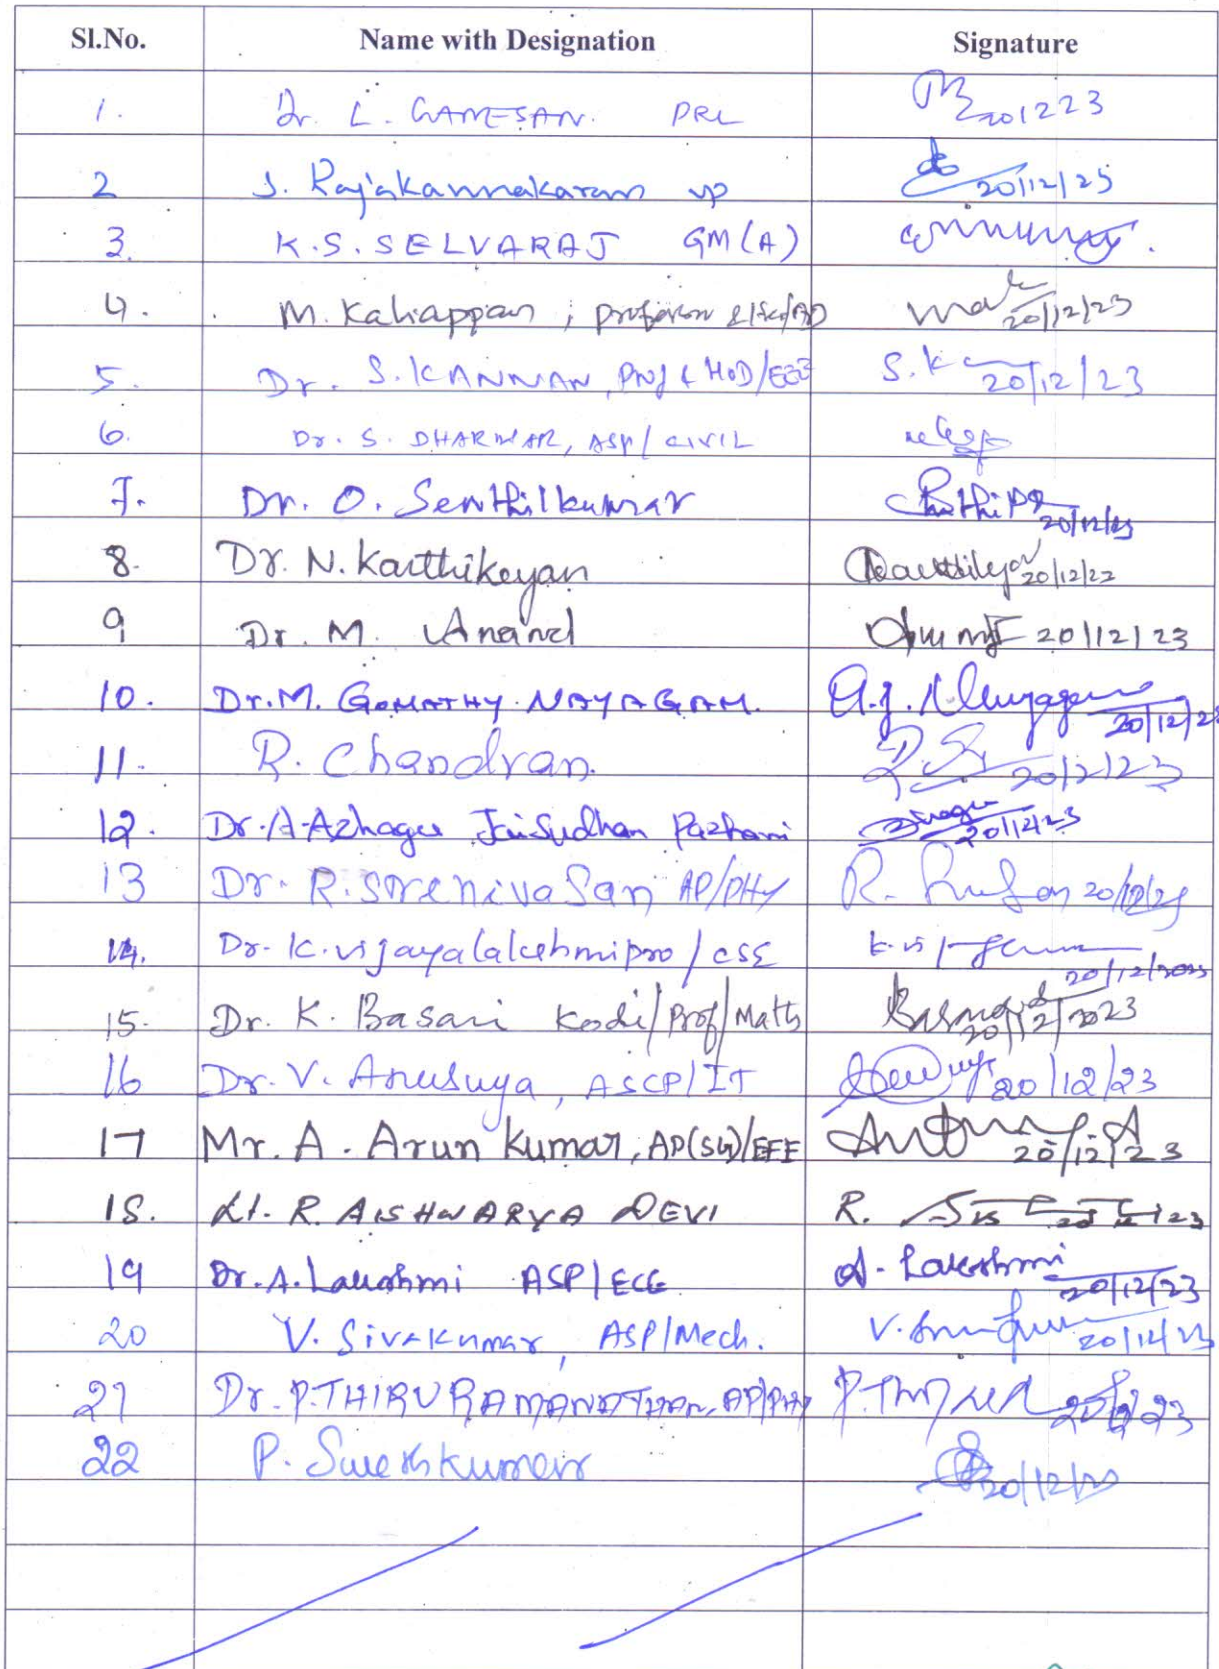 Sl.No. Name with Designation Signature
1. Dr. L. GANESAN. PRL 201223
2 J. Rajakannakaram VP 20/12/23
3. K.S. SELVARAJ GM(A)
4. M. Kaliappan ; professor 20/12/23
5. Dr. S. KANNAN, Prof & HoD/EEE S.K 20/12/23
6. Dr. S. DHARMAR, ASP/CIVIL
7. Dr. O. Senthilkumar 20/12/23
8. Dr. N. Karthikeyan 20/12/22
9 Dr. M. Anand 20/12/23
10. Dr. M. GOMATHY NAYAGAM. 20/12/23
11. R. Chandran. 20/12/23
12. Dr. A. Azhagu Jaisudhan Pazhani 20/12/23
13 Dr. R. Sreenivasan AP/PHY R. 20/12/23
14. Dr. K. vijayalakshmi pro/CSE 20/12/2023
15. Dr. K. Basari Kodi/Prof/Maths 20/12/2023
16 Dr. V. Anusuya, ASCP/IT 20/12/23
17 Mr. A. Arun Kumar, AP(SG)/EEE 20/12/23
18. Lt. R. AISHWARYA DEVI R. 23
19 Dr. A. Lakshmi ASP/ECE A. Lakshmi 20/12/23
20 V. Sivakumar, ASP/Mech. V. 20/12/23
21 Dr. P. THIRURAMANATHAN, AP/PHY 23
22 P. Sureshkumar 20/12/23